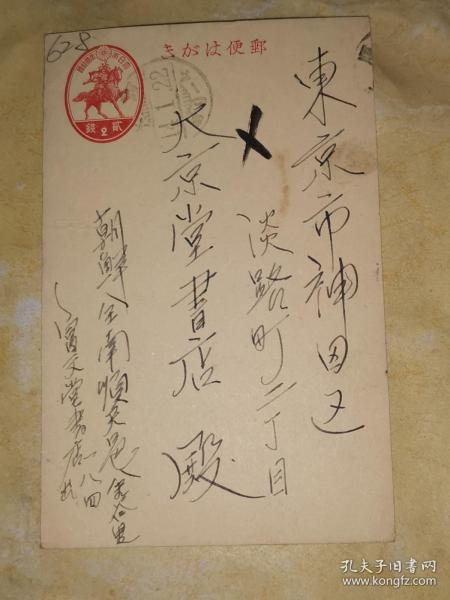 628
郵便はがき
大日本帝國郵便
貳2錢
1.22
東京市神田区
淡路町二丁目
大京堂書店 殿
朝鮮全南順天邑
富文堂書店
孔夫子旧书网
www.kongfz.com